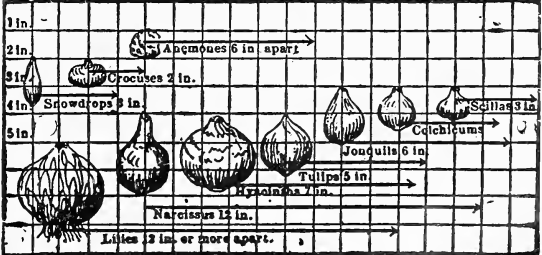 1 in.
2 in.
Anemones 6 in. apart
3 in.
Crocuses 2 in.
Snowdrops 3 in.
4 in.
Scillas 3 in.
Colchicums
5 in.
Jonquils 6 in.
Tulips 5 in.
Hyacinths 7 in.
Narcissus 12 in.
Lilies 12 in. or more apart.